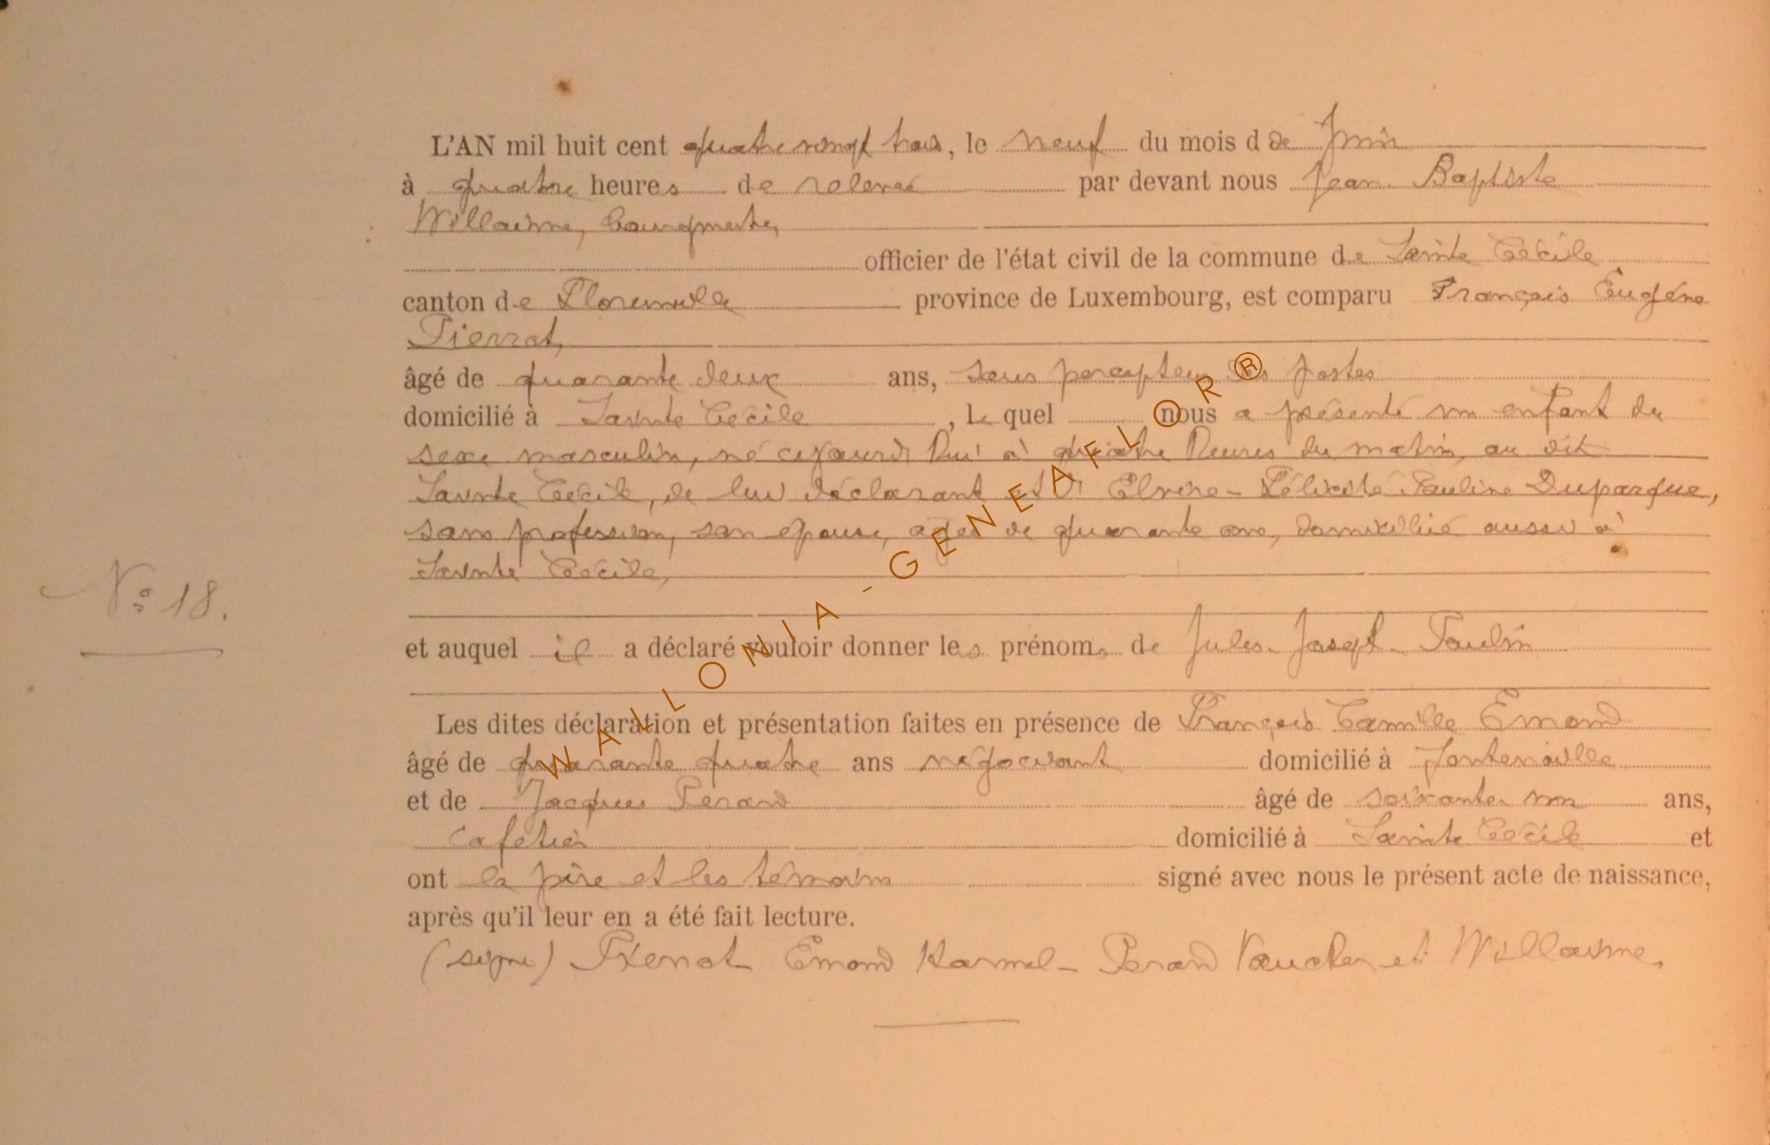 L'AN mil huit cent quatre vingt trois, le neuf du mois d de Juin
à quatre heures de relevée par devant nous Jean Baptiste
Willaime, bourgmestre,
officier de l'état civil de la commune de Sainte Cécile
canton de Florenville province de Luxembourg, est comparu François Eugène
Pierrot,
âgé de quarante deux ans, sous percepteur des postes
domicilié à Sainte Cécile, Le quel nous a présenté un enfant du
sexe masculin, né cejourd'hui à quatre heures du matin au dit
Sainte Cécile, de lui déclarant et d' Elvire-Félicité Pauline Duparque,
sans profession, son épouse, agée de quarante ans, domiciliée aussi à
Sainte Cécile,
N° 18.
et auquel il a déclaré vouloir donner les prénoms de Jules-Joseph-Paulin
Les dites déclaration et présentation faites en présence de François Camille Emond
âgé de quarante quatre ans négociant domicilié à Fontenoille
et de Jacques Perard âgé de soixante un ans,
cafetier domicilié à Sainte Cécile et
ont le père et les témoins signé avec nous le présent acte de naissance,
après qu'il leur en a été fait lecture.
(signé) Pierrot Emond Perard et Willaime
WALLONIA-GENEAFLOR®